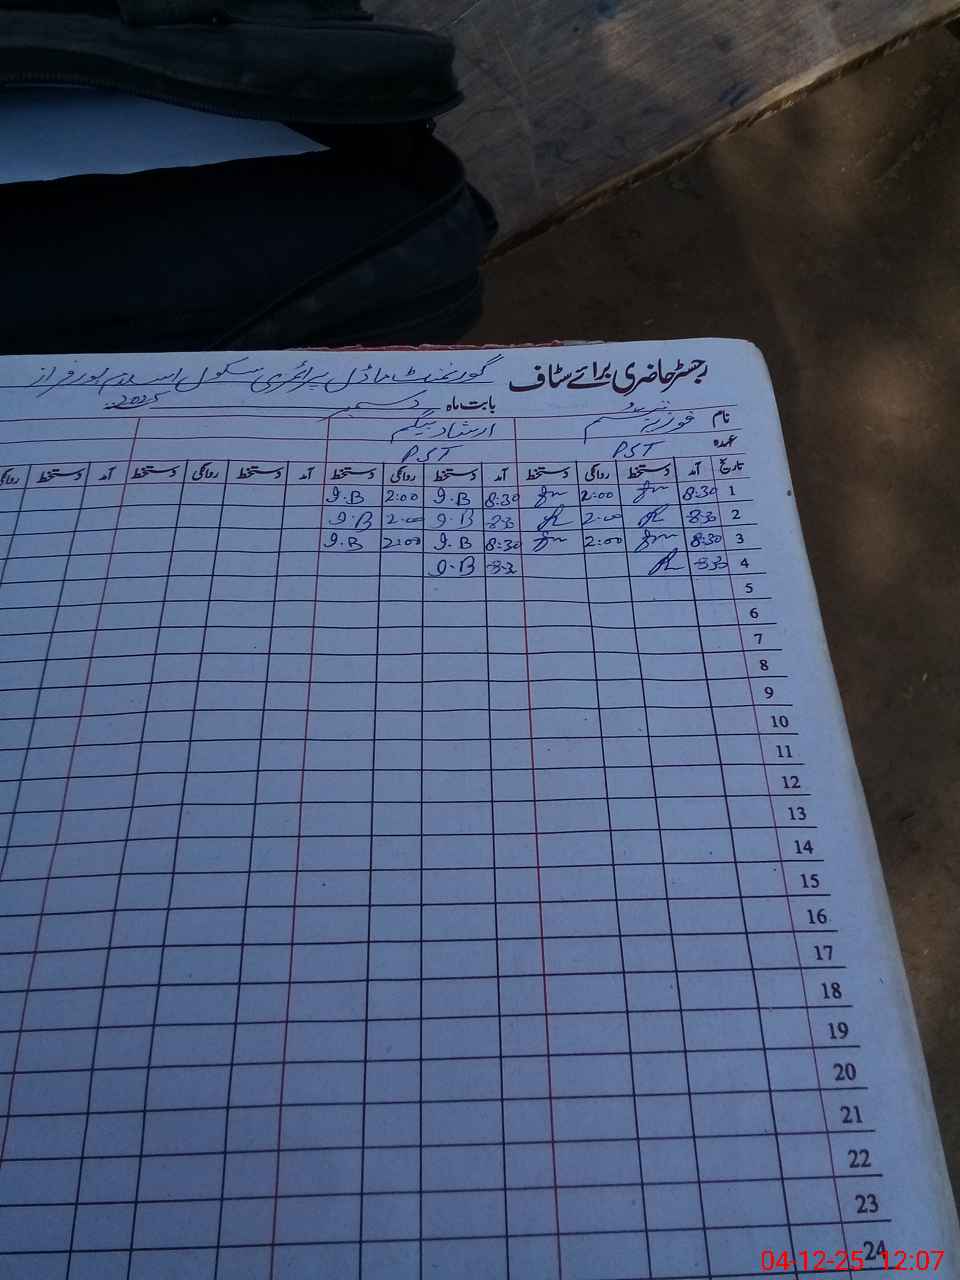 رجسٹر حاضری برائے سٹاف گورنمنٹ ماڈل پرائمری سکول اسلام پور فراز
بابت ماہ دسمبر 2025
نام فوزیہ ارشاد بیگم
عہدہ PST PST
تاریخ آمد دستخط روانگی دستخط آمد دستخط روانگی دستخط آمد دستخط روانگی دستخط آمد دستخط روانگی
1 8:30 2:00 8:30 I.B 2:00 I.B
2 8:30 2:00 8:30 I.B 2:00 I.B
3 8:30 2:00 8:30 I.B 2:00 I.B
4 8:30 8:30 I.B
5
6
7
8
9
10
11
12
13
14
15
16
17
18
19
20
21
22
23
24
04-12-25 12:07